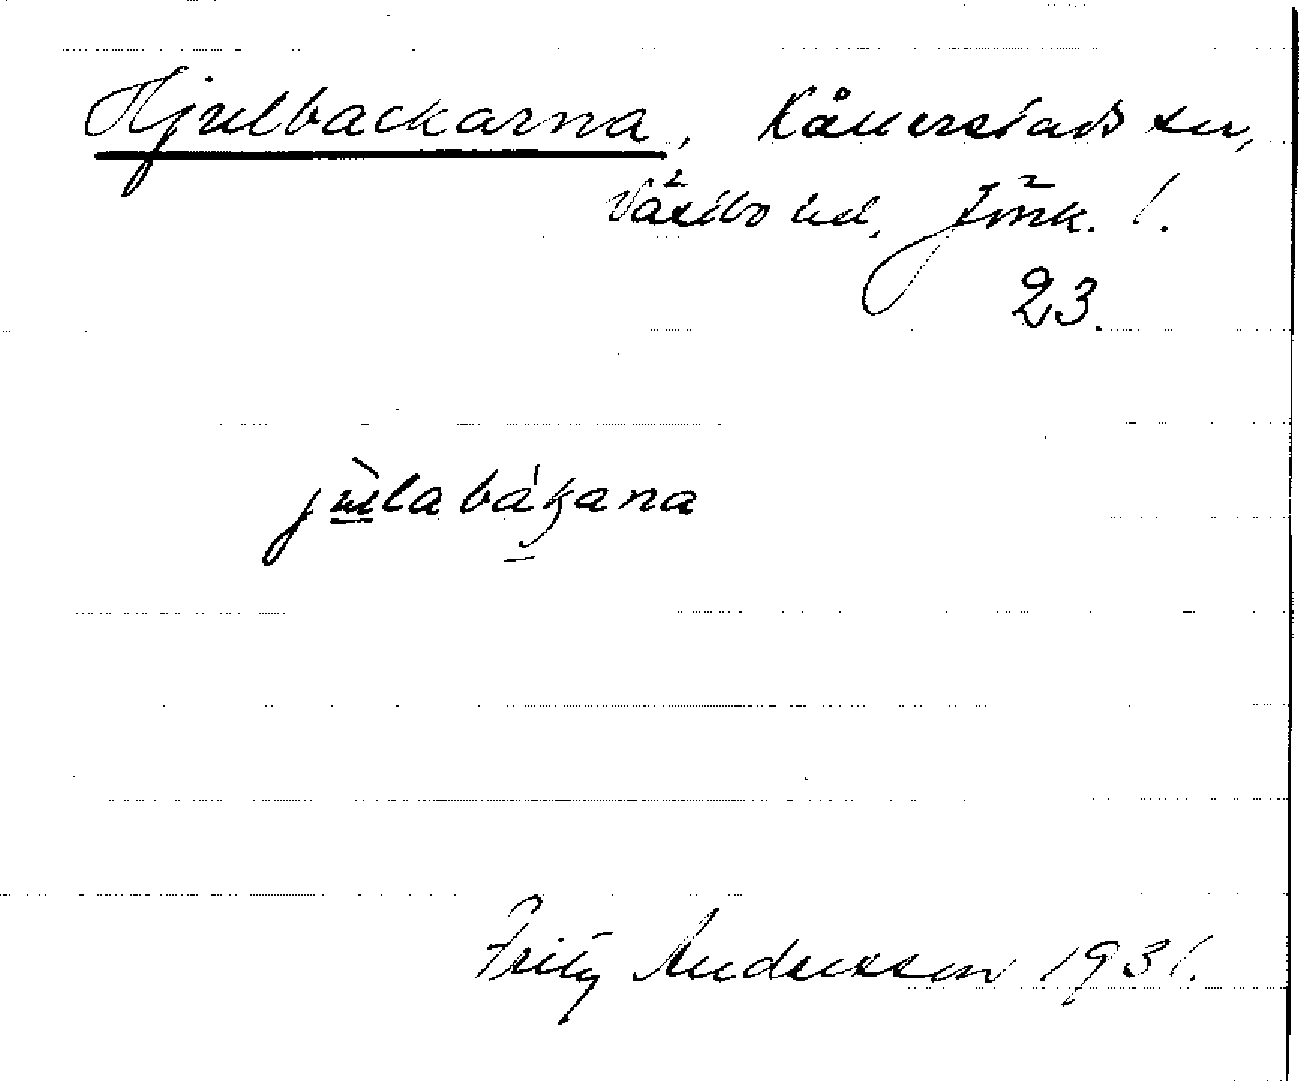 Hjulbackarna, Kållerstads sn,
Västbo hd, Jönk. l.
23.
jùlabákana
Fritz Andersson 1931.